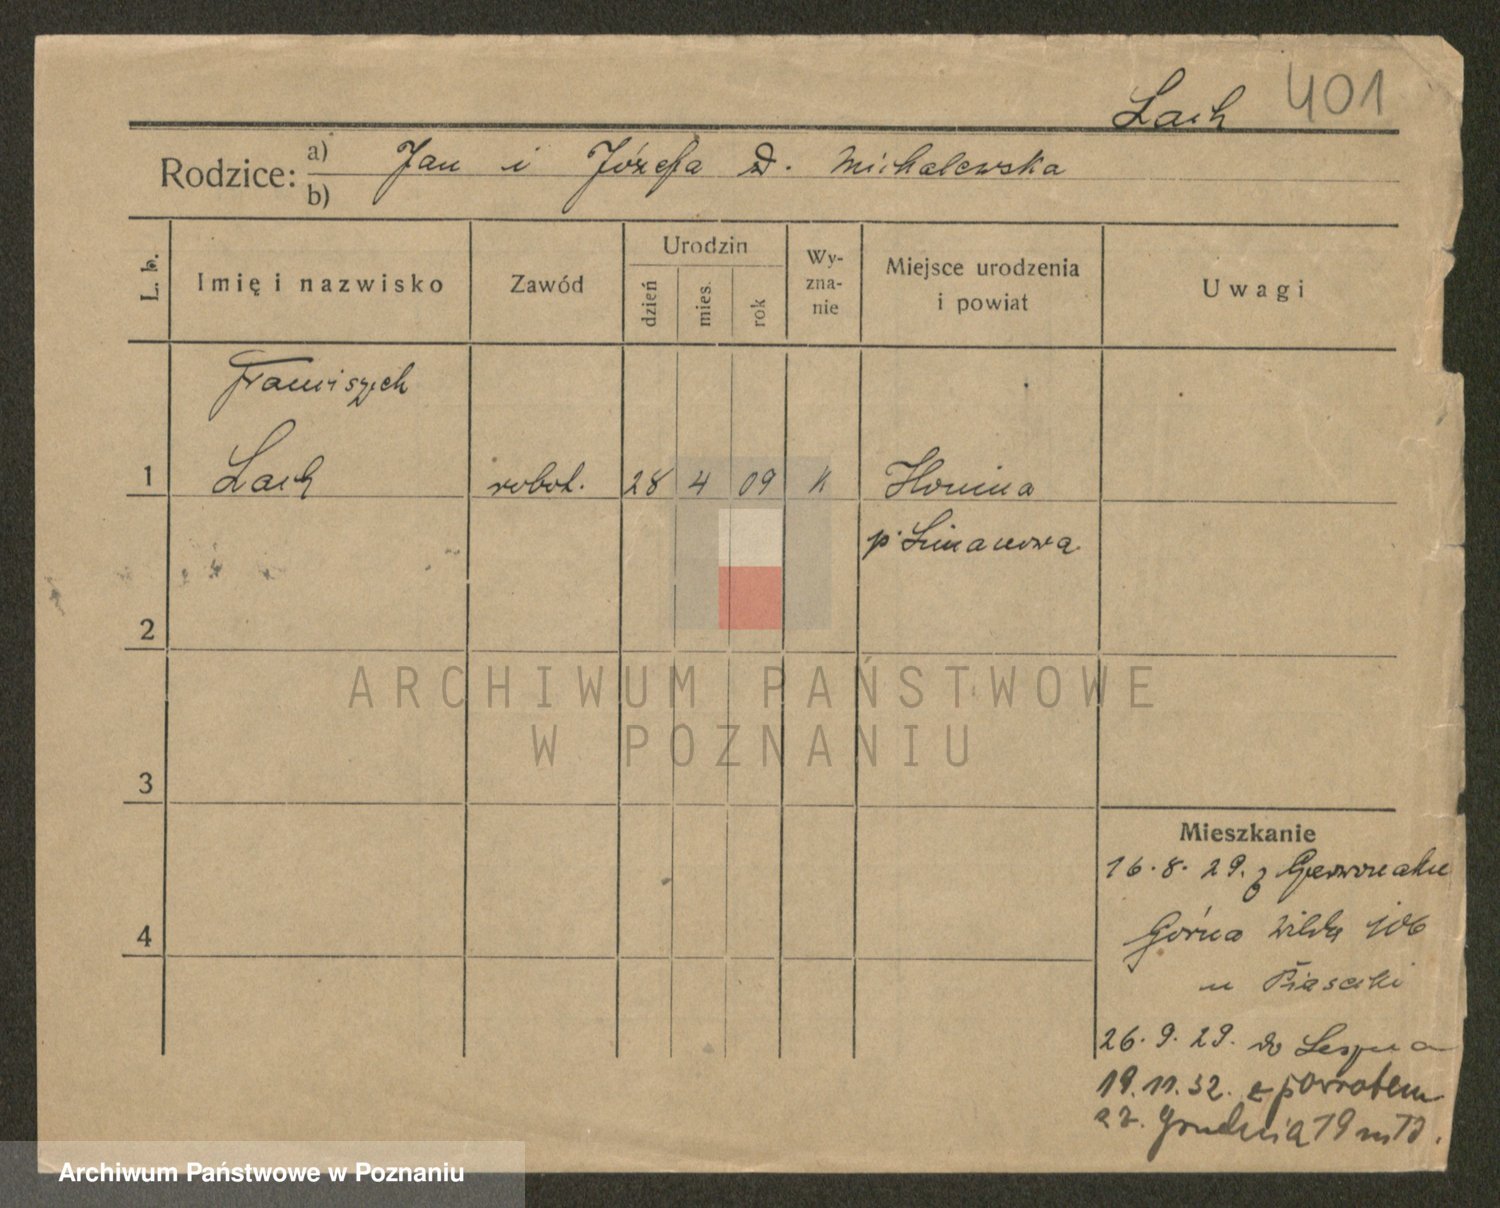 Lach 401
Rodzice: a) Jan i Józefa D. Michalewska
b)
L. b. Imię i nazwisko Zawód Urodzin dzień mies. rok Wy-zna-nie Miejsce urodzenia i powiat Uwagi
Franciszek
1 Lach robot. 28 4 09 k Słonina
p. Limanowa
2
ARCHIWUM PAŃSTWOWE
W POZNANIU
3
Mieszkanie
16.8.29. z
4 Górna Wilda 106
u Piasecki
26.9.29. do
19.11.32. z powrotem
grudnia 19 m
Archiwum Państwowe w Poznaniu